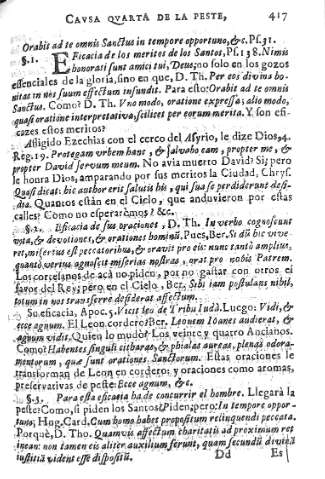 CAVSA QVARTA DE LA PESTE, 417
Orabit ad te omnis Sanctus in tempore opportuno, &c. Ps. 31.
§. 1. Eficacia de los meritos de los Santos, Ps. 138. Nimis
honorati sunt amici tui, Deus; no solo en los gozos
essenciales de la gloria, sino en que, D. Th. Per eos divina bo-
nitas in nos suum effectum infundit. Para esto: Orabit ad te omnis
Sanctus. Como? D. Th. Vno modo, oratione expressa; alio modo,
quasi oratione interpretativa, scilicet per eorum merita. Y son efi-
cazes estos meritos?
Afligido Ezechias con el cerco del Asyrio, le dize Dios, 4.
Reg. 19. Protegam urbem hanc, & salvabo eam, propter me, &
propter David servum meum. No avia muerto David? Si; pero
le honra Dios, amparando por sus meritos la Ciudad, Chrys.
Quasi dicat: hic author eris salutis his, qui sua se perdiderunt desi-
dia. Quantos están en el Cielo, que anduvieron por estas
calles? Como no esperarèmos? &c.
§. 2. Eficacia de sus oraciones, D. Th. In verbo cognoscunt
vota, & devotiones, & orationes hominũ. Pues, Ber. Si dũ hic vive-
ret, misertus est peccatoribus, & oravit pro eis: nunc tantò amplius,
quantò verius agnoscit miserias nostras, orat pro nobis Patrem.
Los cortesanos de acà no piden, por no gastar con otros el
favor del Rey; pero en el Cielo, Ber. Sibi iam postulans nihil,
totum in nos transferre desiderat affectum.
Su eficacia, Apoc. 5. Vicit leo de Tribu Iudà. Luego: Vidi, &
ecce agnum. El Leon cordero? Ber. Leonem Ioanes audierat, &
agnum vidit. Quien lo mudò? Los veinte y quatro Ancianos.
Como? Habentes singuli citharas, & phialas aureas, plenas odora-
mentorum, quæ sunt orationes Sanctorum. Estas oraciones le
transforman de Leon en cordero; y oraciones como aromas,
preservativas de peste: Ecce agnum, &c.
§. 3. Para esta eficacia ha de concurrir el hombre. Llegarà la
peste: Como, si piden los Santos? Piden; pero: In tempore oppor-
tuno, Hug. Card. Cum homo habet propositum relinquendi peccata.
Porquè, D. Tho. Quamvis affectum charitatis ad proximum ret
inean: non tamen eis aliter auxilium ferunt, quam secundũ divinã
iustitiã vident esse dispositũ.
Dd Es